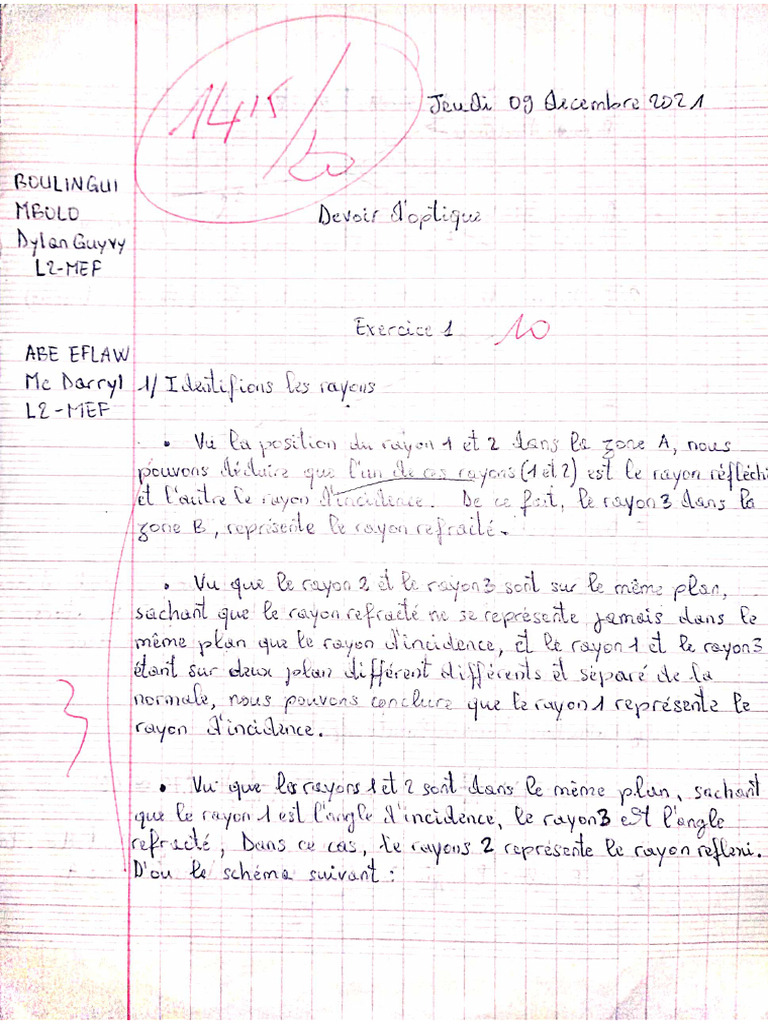 14,5/20
Jeudi 09 decembre 2021
BOULINGUI
MBOLO
Dylan Guyvy
L2-MEF
Devoir d'optique
Exercice 1 10
ABE EFLAW
Mc Darryl
L2-MEF
1/ Identifions les rayons
• Vu la position du rayon 1 et 2 dans la zone A, nous
pouvons déduire que l'un de ces rayons (1 et 2) est le rayon réfléchi
et l'autre le rayon d'incidence. De ce fait, le rayon 3 dans la
zone B, représente le rayon refracté.
• Vu que le rayon 2 et le rayon 3 sont sur le même plan,
sachant que le rayon refracté ne se représente jamais dans le
même plan que le rayon d'incidence, et le rayon 1 et le rayon 3
étant sur deux plan différent différents et séparé de la
normale, nous pouvons conclure que le rayon 1 représente le
rayon d'incidence.
3
• Vu que les rayons 1 et 2 sont dans le même plan, sachant
que le rayon 1 est l'angle d'incidence, le rayon 3 est l'angle
refracté, Dans ce cas, le rayons 2 représente le rayon reflexi.
D'ou le schéma suivant :